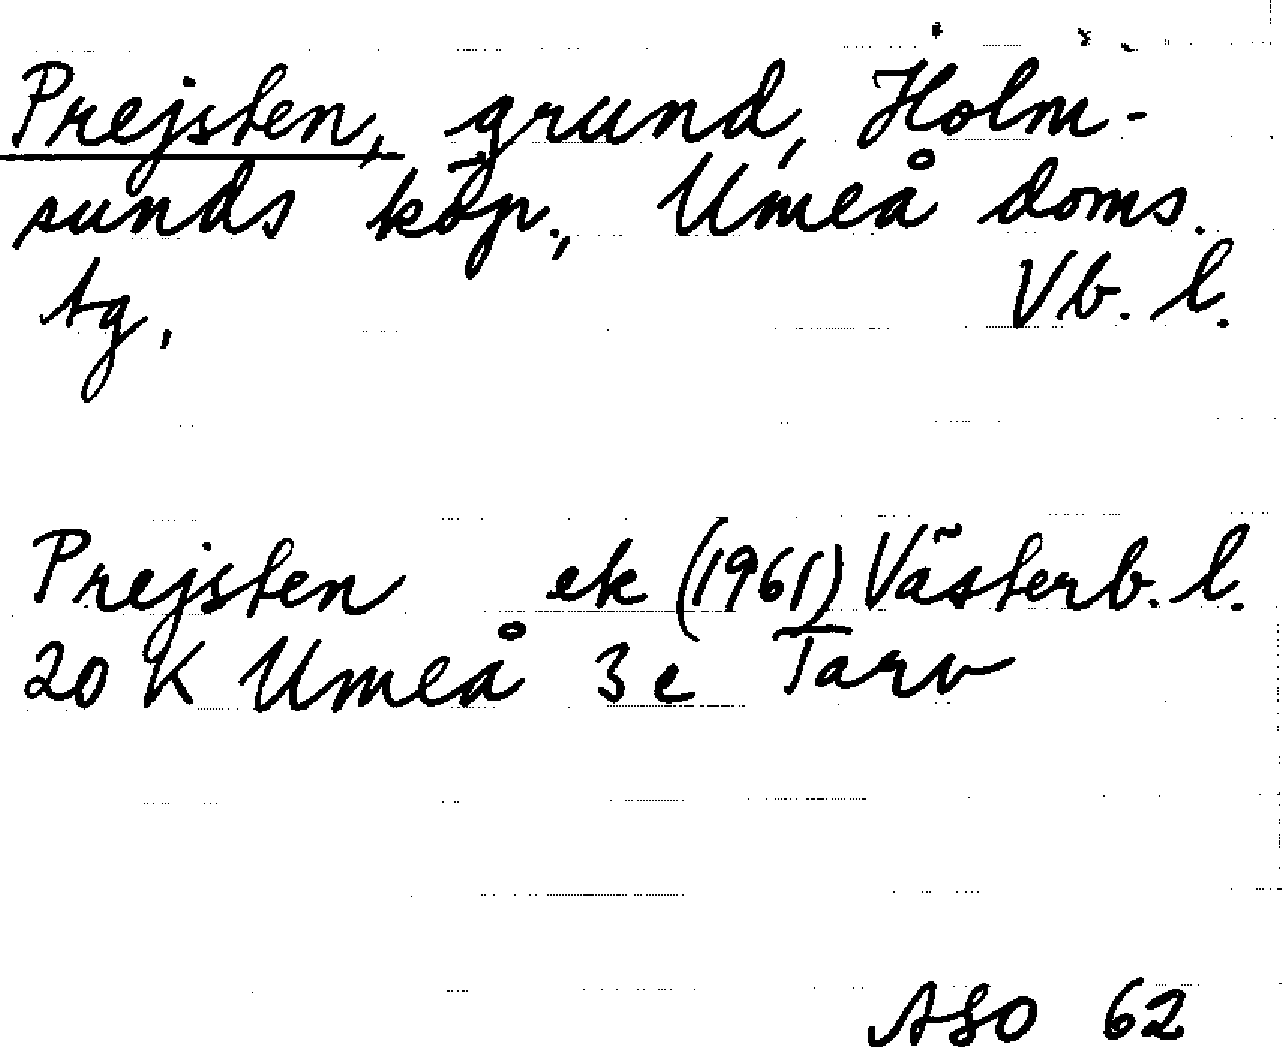 Prejsten, grund, Holm-
sunds köp., Umeå doms.
tg. Vb. l.
Prejsten ek (1961) Västerb. l.
20 K Umeå 3 c Tarv
ASO 62